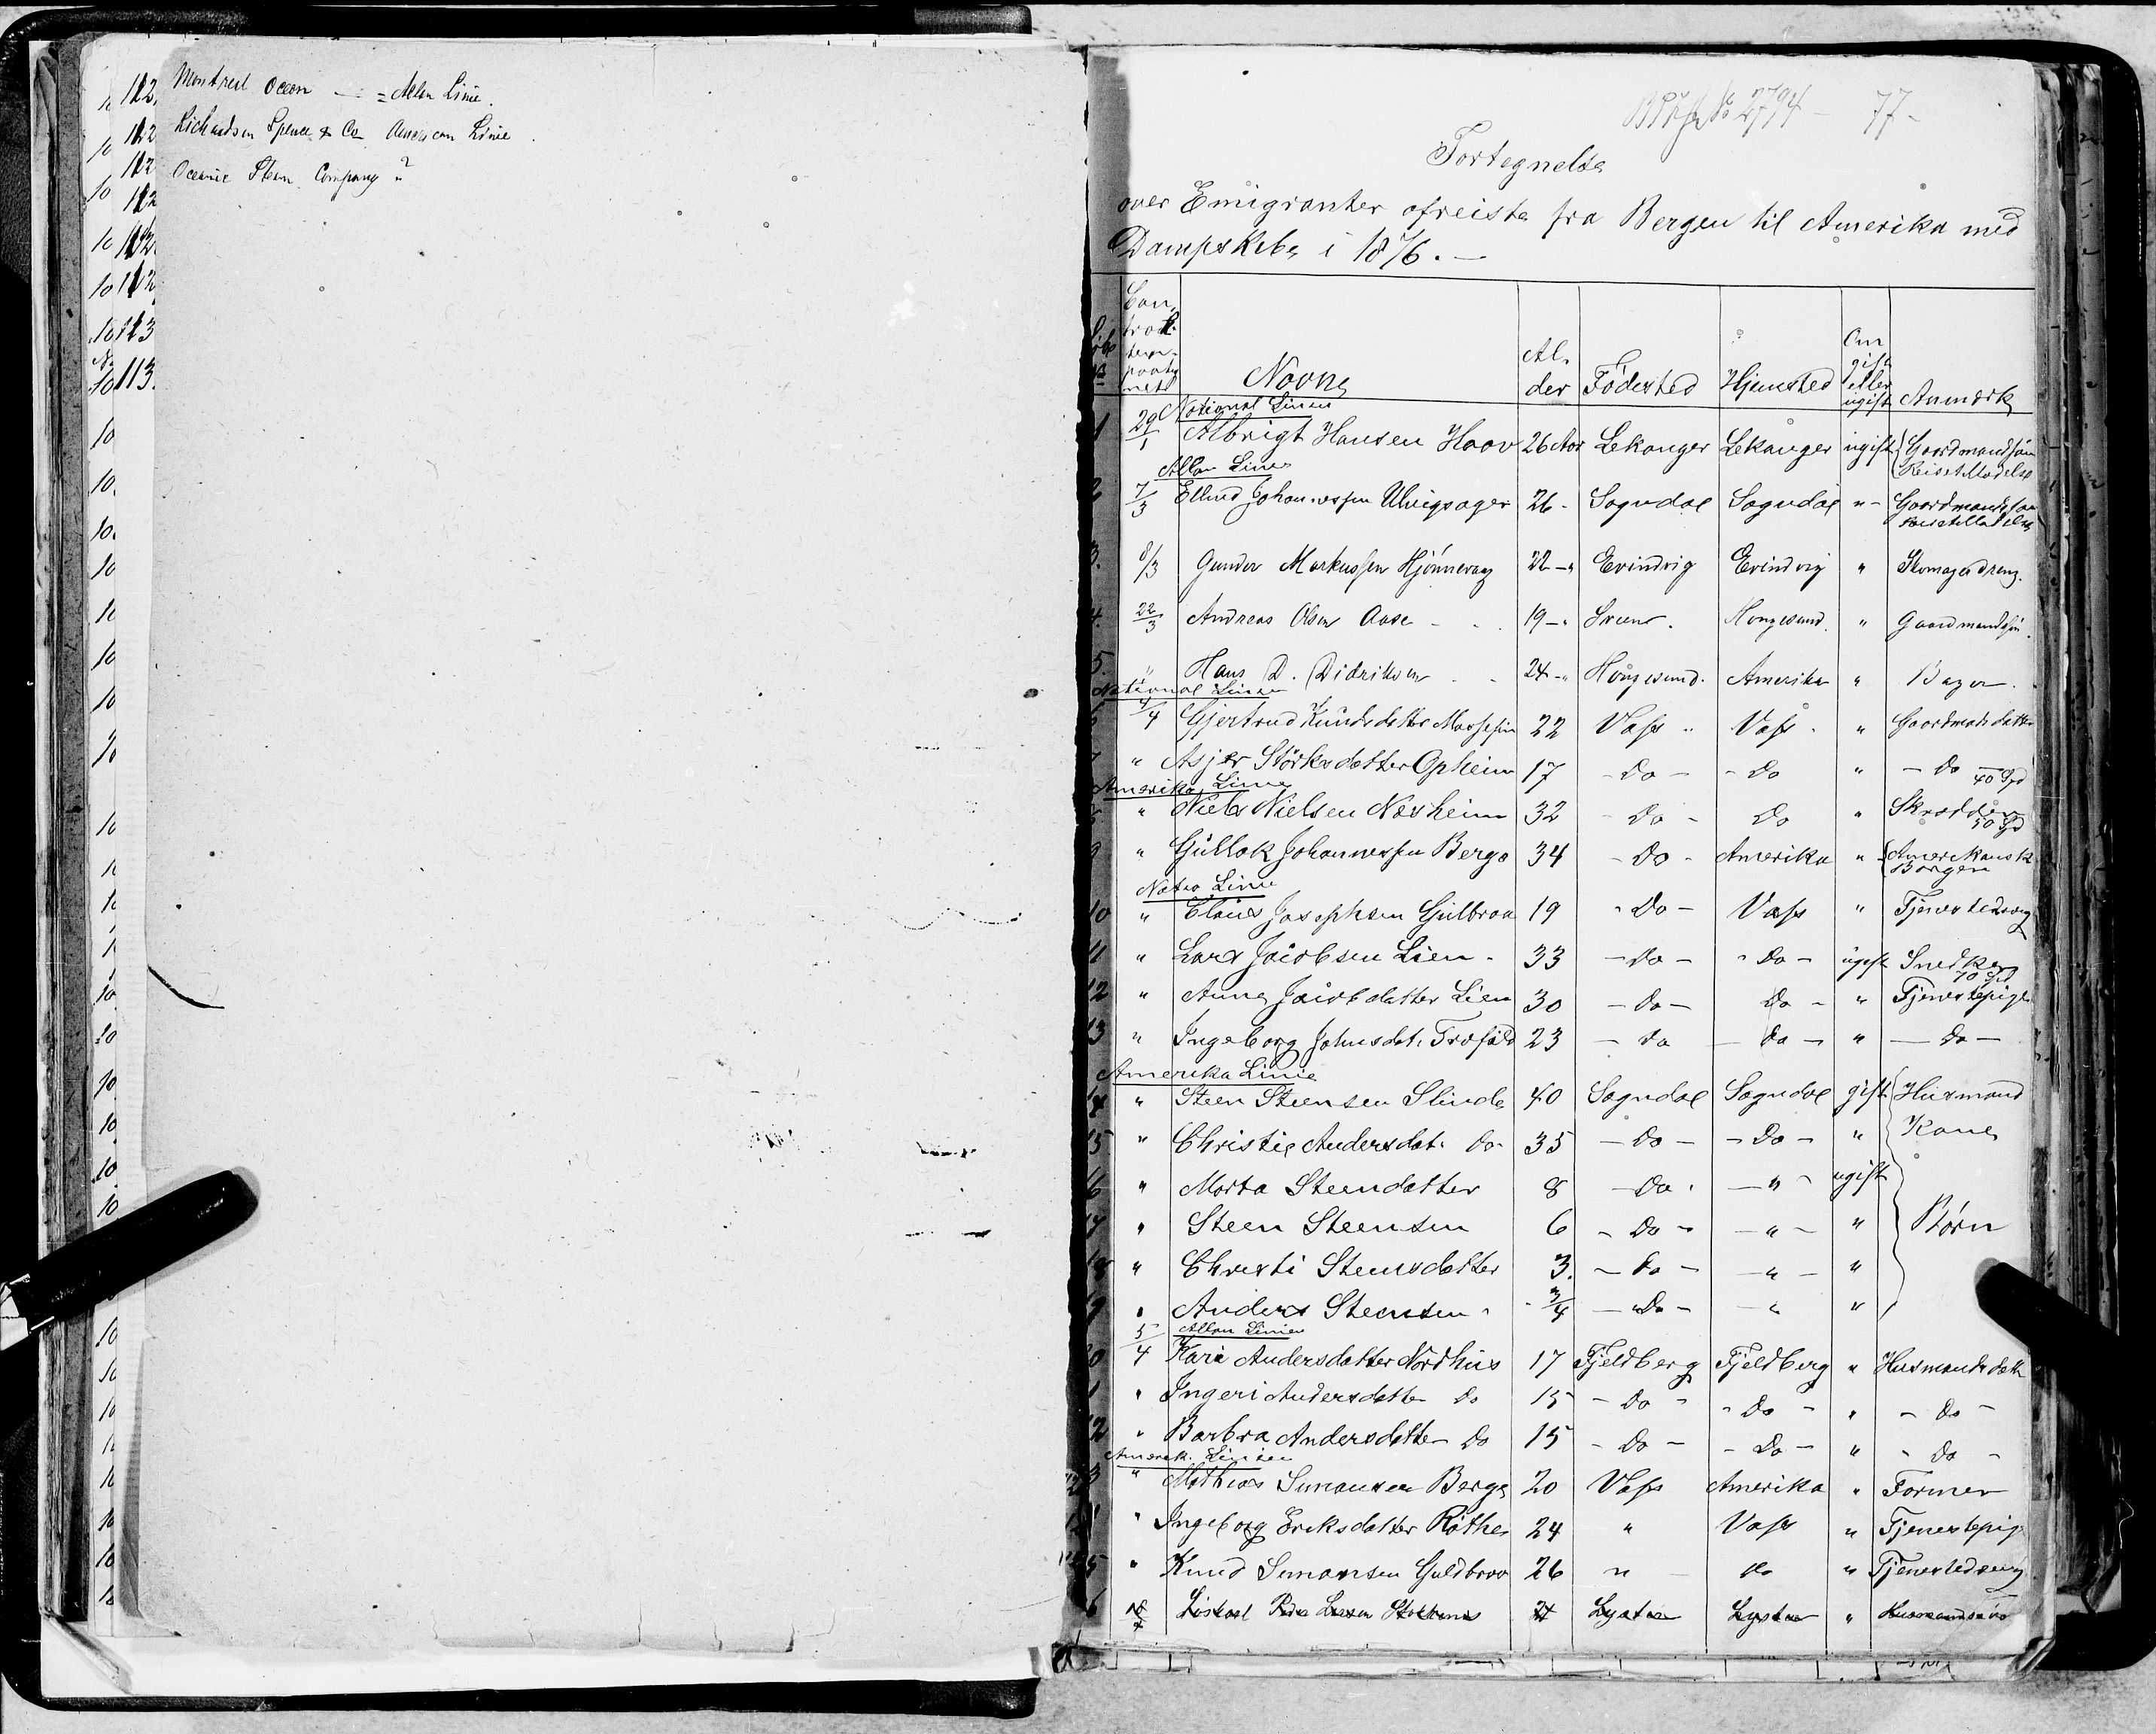 Montreal Ocean — = Allan Linie.
Richardson Spence & Co American Linie.
Oceanic Steam Company ?
No 2794 - 77 -
Fortegnelse
over Emigranter afreiste fra Bergen til Amerika med
Dampskibe i 1876. —
Navne Alder Födested Hjemsted Om gift eller ugift Anmærk
National Linien
1 29/1 Albrigt Hansen Haav 26 Aar Lekanger Lekanger ugift Gaardmandsön
Allan Linie
2 7/3 Ellend Johannessen Ulvigsager 26 - Sogndal Sogndal " Gaardmandsön
3. 8/3 Gunder Markussen 22 - " Evindvig Evindvig " Skomagerdreng.
4. 22/3 Andreas Olsen Aase 19 - " Sveen. Haugesund. " Gaardmandsön.
5. " Hans D. Didriksen 24 - " Haugesund. Amerika " Bager.
National Linien
6 4/4 Gjertrud Knudsdatter 22 Voss " Voss " Gaardmds datter
7 " Asjer Störksdatter Opheim 17 - Do - - Do " - Do - 40 Spd
Amerika Linie
8 " Niels Nielsen Nesheim 32 - Do - Do " Skrædder 50 Spd
9 " Gullak Johannessen Berge 34 - Do - Amerika " Amerikansk Borger
Natio Linie
10 " Claus Josephsen Gulbraa 19 - Do - Voss " Tjenestedreng
11 " Lars Jacobsen Lien - 33 - Do - - Do - ugift Snedker 70 Spd
12 " Anna Jacobdatter Lien 30 - Do - Do - " Tjenestepige
13 " Ingeborg Johnsdat. 23 - Do - Do - " - Do -
Amerika Linie
14 " Steen Steensen Slinde 40 Sogndal Sogndal gift Husmand
15 " Christie Andersdat. Do 35 - Do - - Do - " Kone
16 " Marta Steendatter 8 - Do - - " - ugift
17 " Steen Steensen 6 - Do - - " - " Børn
18 " Christi Steensdatter 3. - Do - - " - "
19 " Anders Steensen 3/4 - Do - - " "
Allan Linien
20 5/4 Kari Andersdatter Nordhus 17 Fjeldberg Fjeldberg " Husmands datt
1 " Ingeri Andersdatter Do 15 - Do - - Do - " - Do -
2 " Barbra Andersdatter Do 15 - Do - - Do - " - Do -
Amerik. Linien
3 " Mathias Simonsen Berge 20 Voss Amerika " Farmer
" Ingeborg Eriksdatter Röthe 24 " Voss " Tjenestepig
5 " Knud Simonsen Guldbraa 26 " do " Tjenestedreng
6 Lyster Lyster " Husmandsön